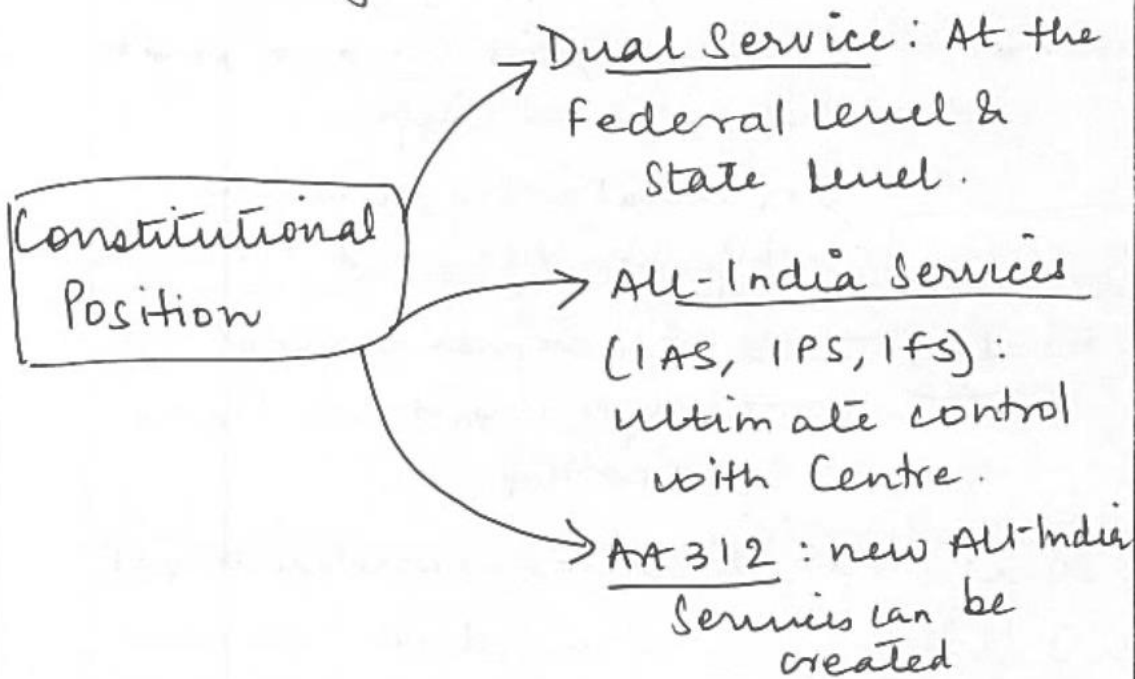 Constitutional
Position
Dual Service: At the
Federal Level &
State Level.
All-India Services
(IAS, IPS, IFS):
ultimate control
with Centre.
AA 312: new All-India
Services can be
created